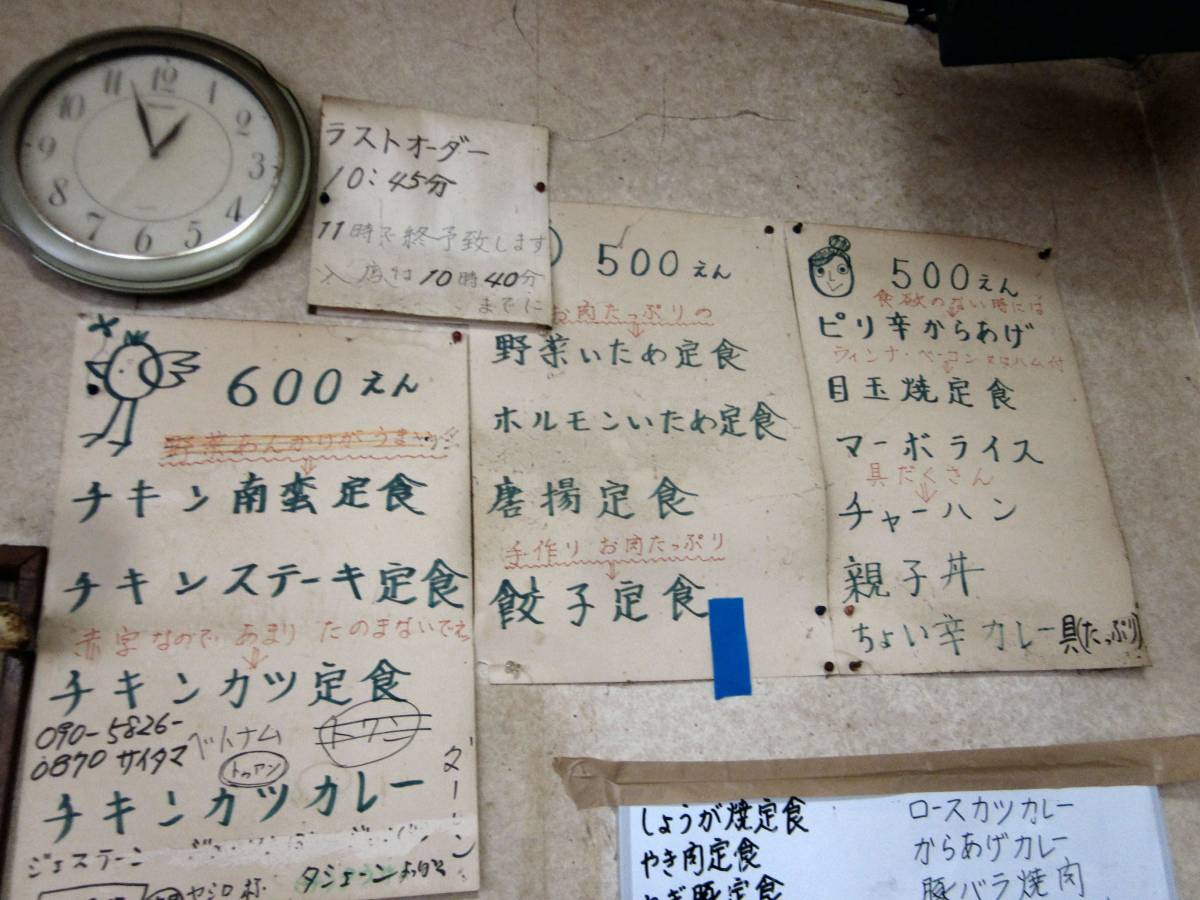 12
1
2
3
4
5
6
7
8
9
10
11
ラストオーダー
10:45分
11時で終予致します
入店は10時40分
までに
600えん
野菜あんかけがうまい
チキン南蛮定食
チキンステーキ定食
赤字なので あまり たのまないでネ
チキンカツ定食
090-5826-
0870 サイタマ
ベトナム
トワン
トゥアン
チキンカツカレー
ジェステーン
ヤシロ様
タジェーン
500えん
お肉たっぷりの
野菜いため定食
ホルモンいため定食
唐揚定食
手作り お肉たっぷり
餃子定食
500えん
食欲のない時には
ピリ辛からあげ
ウィンナ・ベーコン又はハム付
目玉焼定食
マーボライス
具だくさん
チャーハン
親子丼
ちょい辛 カレー具(たっぷり)
しょうが焼定食
やき肉定食
ねぎ豚定食
ロースカツカレー
からあげカレー
豚バラ焼肉